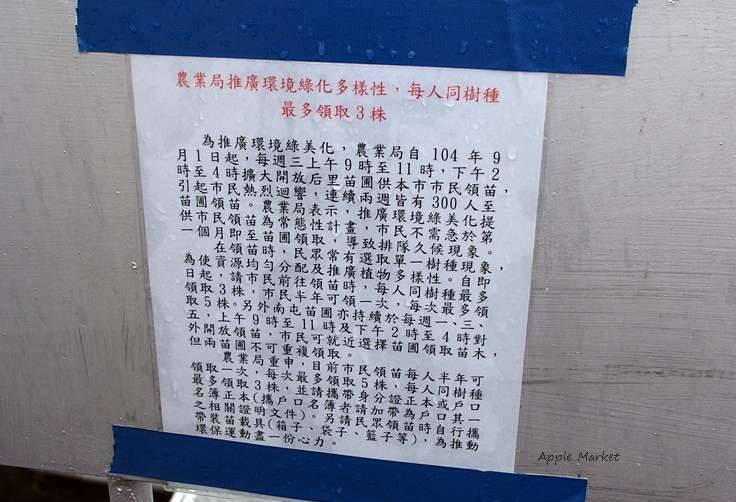 農業局推廣環境綠化多樣性，每人同樹種
最多領取3株
為推廣環境綠美化，農業局自 104 年 9
月1日起，每週三上午9時至11時，下午2
時至4時擴大開放后里苗圃本市市民領苗，
引起市民熱烈迴響，連續兩週皆有 300 人至
苗圃領苗。農業局表示，推廣環境綠美化提
供市民領苗為常態性計畫，
一個月至苗圃領取，導致排隊久候現象。
為使資源均勻分配及推廣植物多樣性，自即
日起，請市民前往苗圃領苗時，每人同樹種最多領
取3株。另外南屯苗圃亦持續於每週一、三、
五，上午9時至11時及下午2時至4時對
外開放領苗，市民可就近選擇苗圃領取苗木，
但兩苗圃不可重複領取。
農業局重申，目前市民領苗每人半年可
領取一次，每次最多領取5株，每人同樹種
最多領取3株，並請攜帶身分證正本或戶口
名簿正本
之相關證明文件)。另領苗時，請民眾自行攜
帶裝苗載具(箱子、袋子、籃子等)，為推動
環保運動盡一份心力。
Apple Market